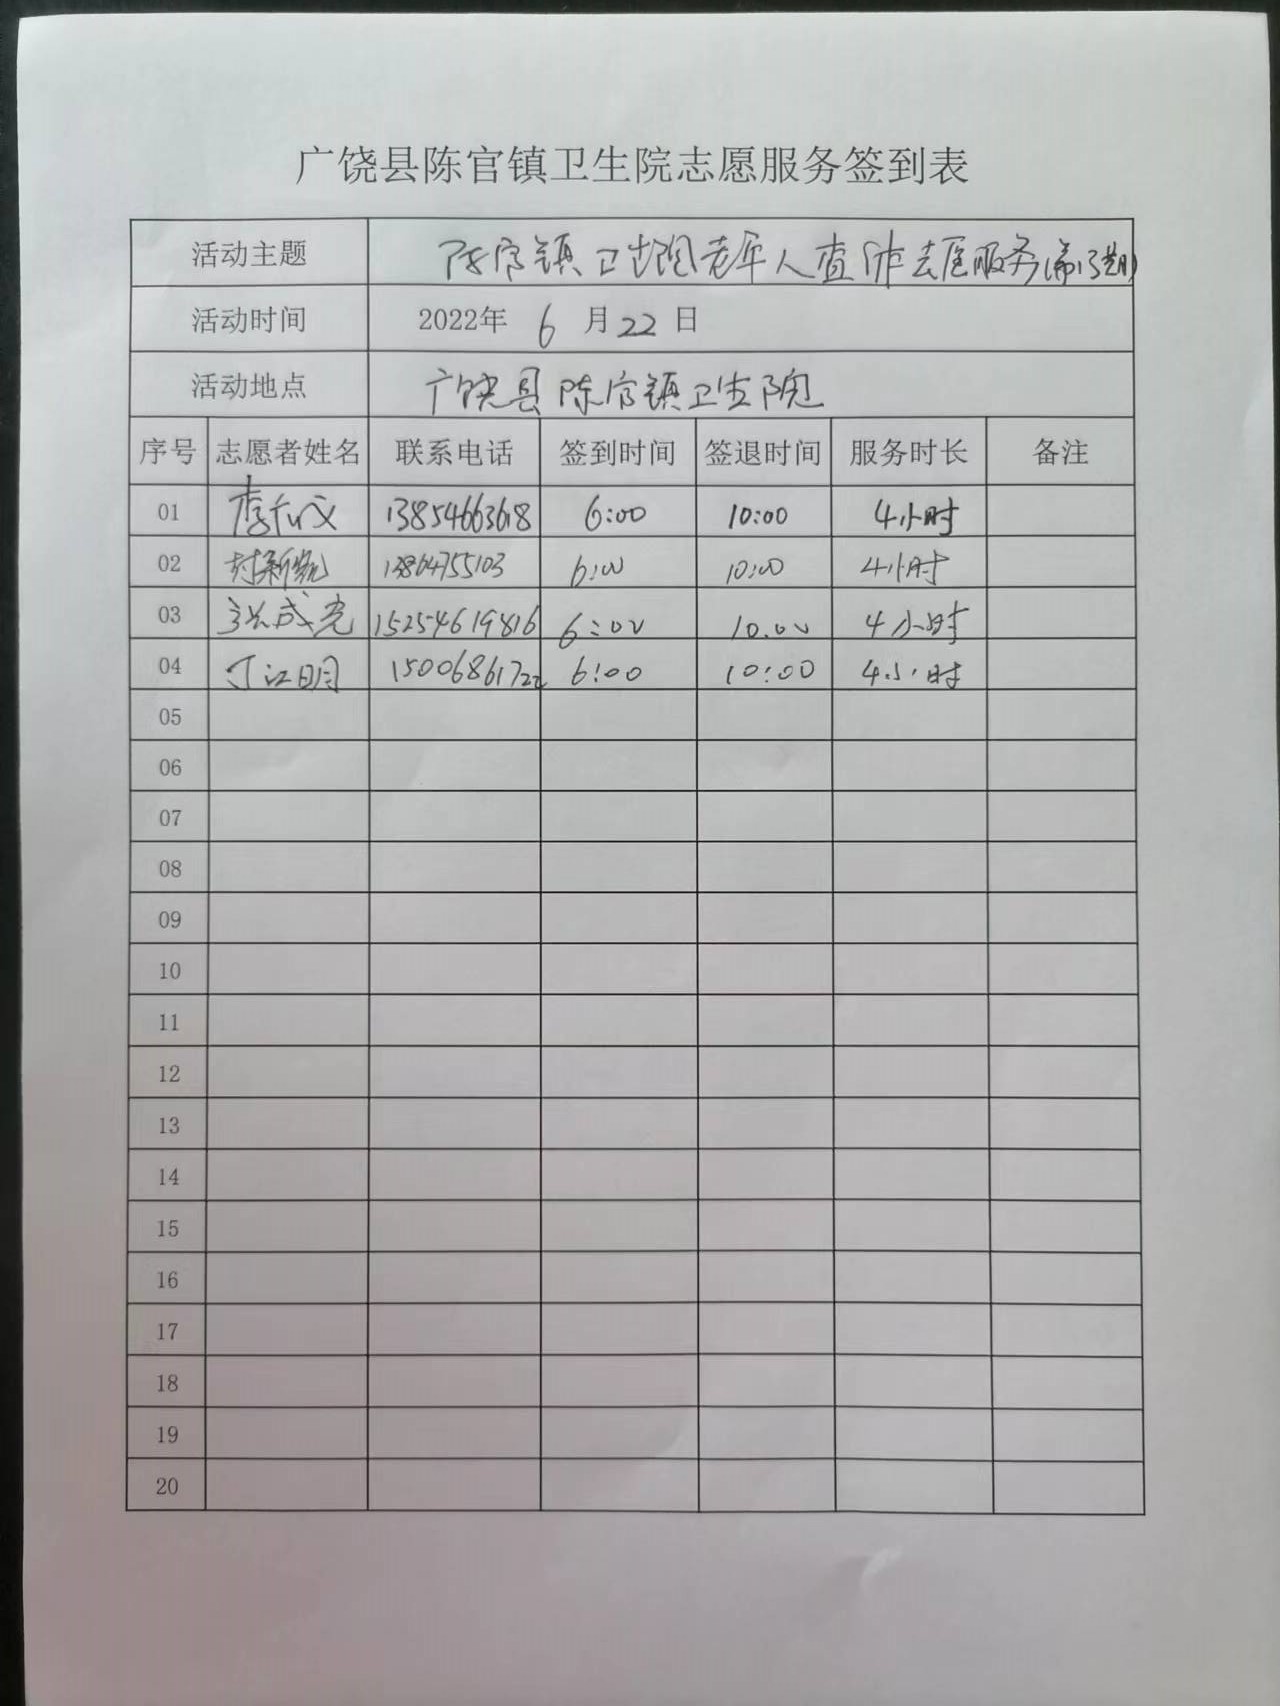 广饶县陈官镇卫生院志愿服务签到表
活动主题 陈官镇卫生院老年人查体志愿服务(第13期)
活动时间 2022年 6 月 22 日
活动地点 广饶县陈官镇卫生院
序号 志愿者姓名 联系电话 签到时间 签退时间 服务时长 备注
01 13854663618 6:00 10:00 4小时
02 13864755103 6:00 10:00 4小时
03 张成亮 15254619816 6:00 10:00 4小时
04 丁江明 15006861722 6:00 10:00 4小时
05
06
07
08
09
10
11
12
13
14
15
16
17
18
19
20